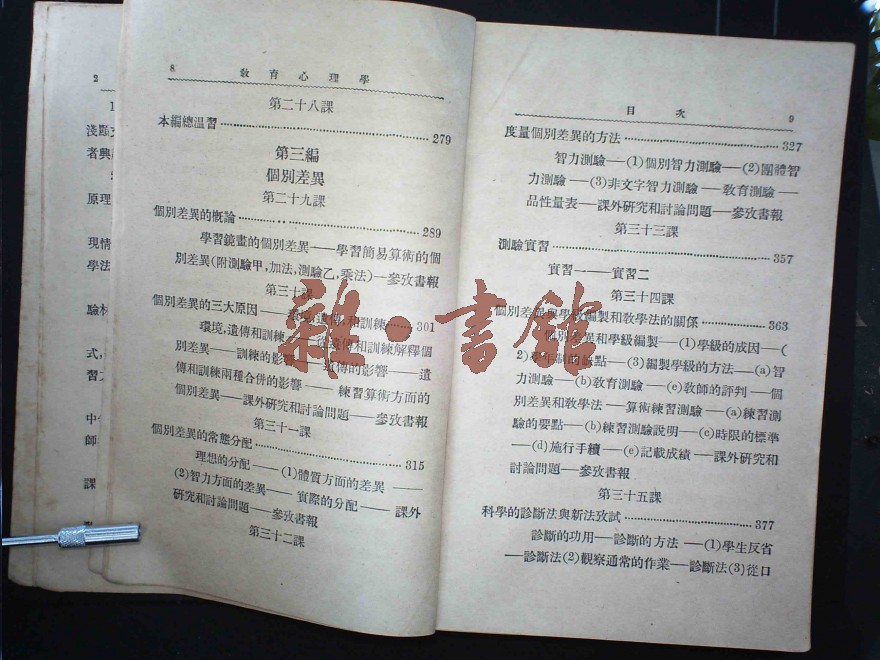 2
淺顯
者興
原理
現情
學法
驗
式,
習
中
師
課
8 教育心理學
第二十八課
本編總溫習 279
第三編
個別差異
第二十九課
個別差異的概論 289
學習鏡畫的個別差異——學習簡易算術的個
別差異(附測驗甲,加法,測驗乙,乘法)—參攷書報
第三十課
個別差異的三大原因——環境,遺傳,和訓練 301
環境,遺傳和訓練——從遺傳和訓練解釋個
別差異——訓練的影響——遺傳的影響——遺
傳和訓練兩種合併的影響——練習算術方面的
個別差異——課外研究和討論問題——參攷書報
第三十一課
個別差異的常態分配 315
理想的分配——(1)體質方面的差異——
(2)智力方面的差異——實際的分配——課外
研究和討論問題——參攷書報
第三十二課
目次 9
度量個別差異的方法 327
智力測驗——(1)個別智力測驗——(2)團體智
力測驗——(3)非文字智力測驗——教育測驗——
品性量表——課外研究和討論問題——參攷書報
第三十三課
測驗實習 357
實習一——實習二
第三十四課
個別差異與學級編製和教學法的關係 363
個別差異和學級編製——(1)學級的成因——(
2)學年制的缺點——(3)編製學級的方法——(a)智
力測驗——(b)教育測驗——(c)教師的評判——個
別差異和教學法——算術練習測驗——(a)練習測
驗的要點——(b)練習測驗說明——(c)時限的標準
——(d)施行手續——(e)記載成績——課外研究和
討論問題——參攷書報
第三十五課
科學的診斷法與新法攷試 377
診斷的功用——診斷的方法——(1)學生反省
——診斷法(2)觀察通常的作業——診斷法(3)從口
雜·書館